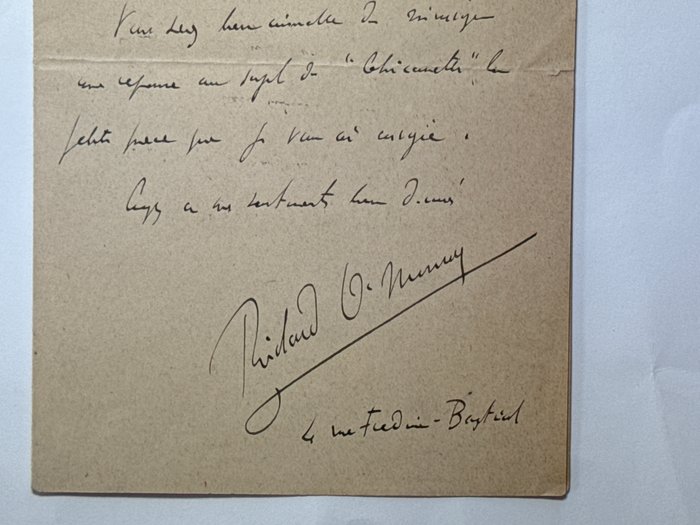 Vous serez bien aimable de m'envoyer
une réponse au sujet de "Chicanette" la
petite pièce que je vous ai envoyée.
Croyez à mes sentiments bien dévoués
Richard O'Monroy
4 rue Frédéric-Bastiat